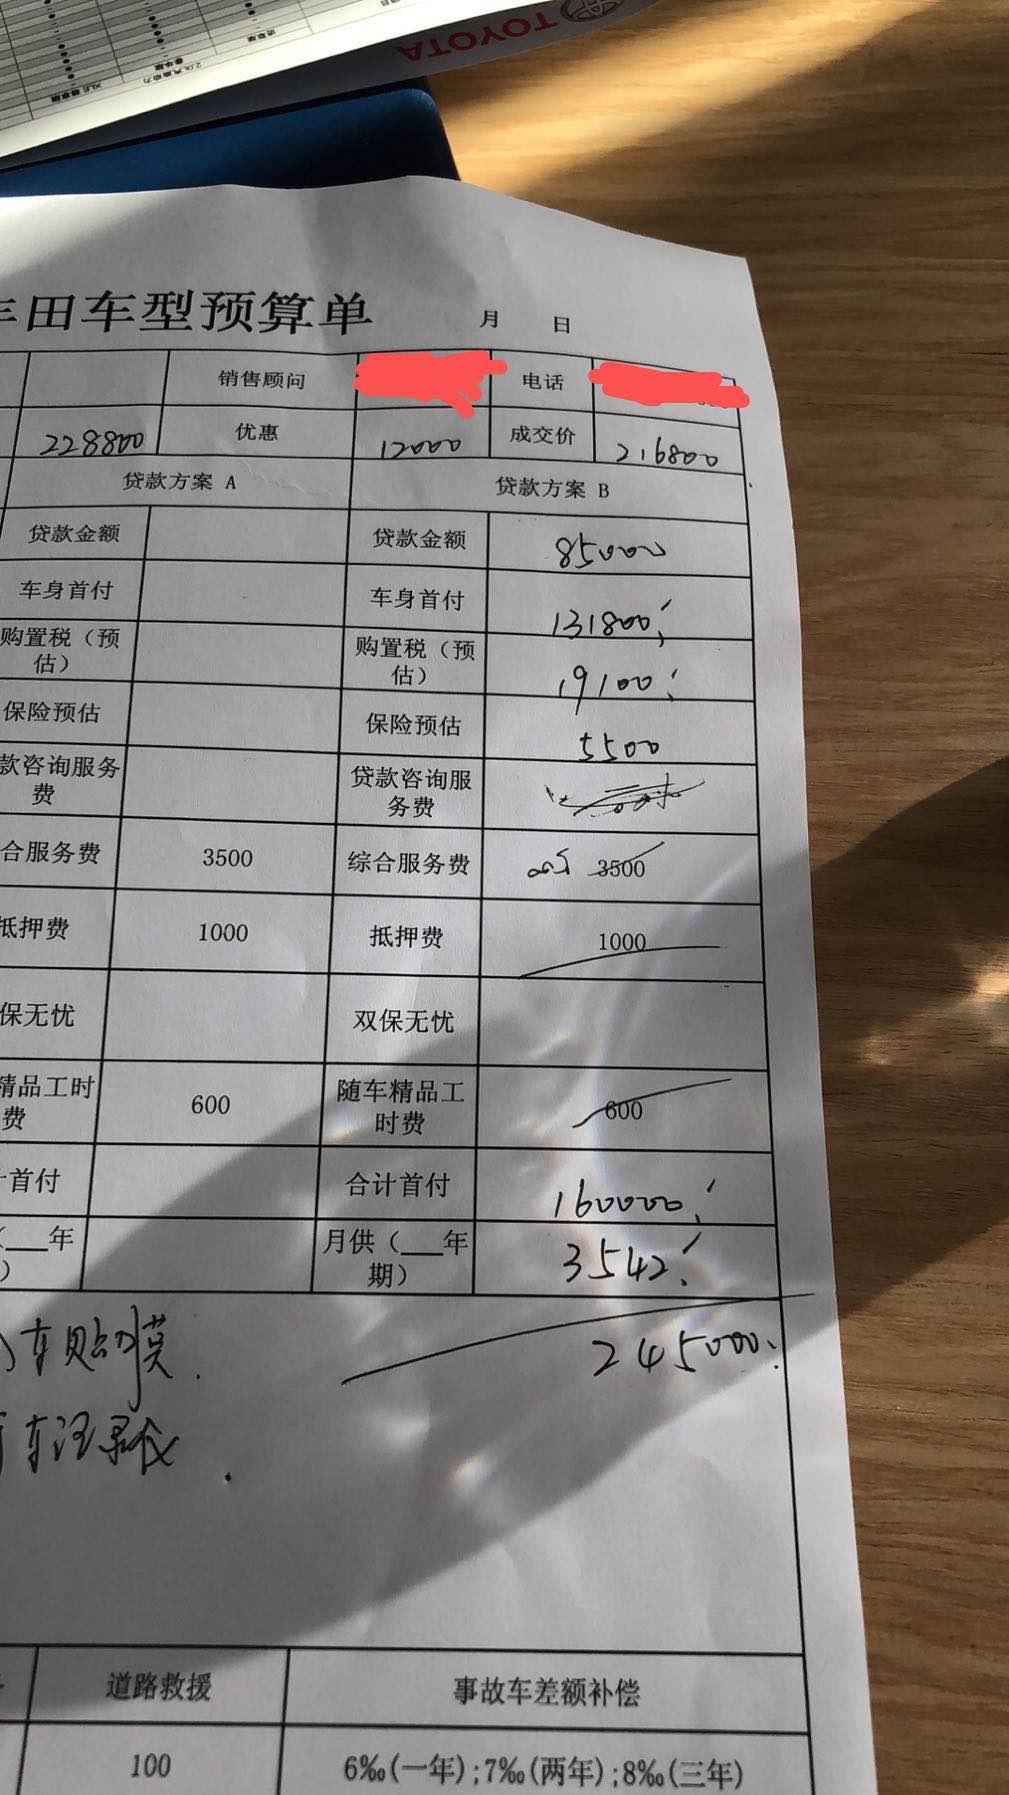 TOYOTA
田车型预算单 月 日
销售顾问 电话
228800 优惠 12000 成交价 216800
贷款方案 A 贷款方案 B
贷款金额 贷款金额 85000
车身首付 车身首付 131800
购置税（预估） 购置税（预估） 19100
保险预估 保险预估 5500
款咨询服务费 贷款咨询服务费
合服务费 3500 综合服务费 3500
抵押费 1000 抵押费 1000
保无忧 双保无忧
精品工时费 600 随车精品工时费 600
首付 合计首付 160000
（___年 月供（___年期） 3542
车贴膜. 245000
车记录仪.
道路救援 事故车差额补偿
100 6‰(一年);7‰(两年);8‰(三年)